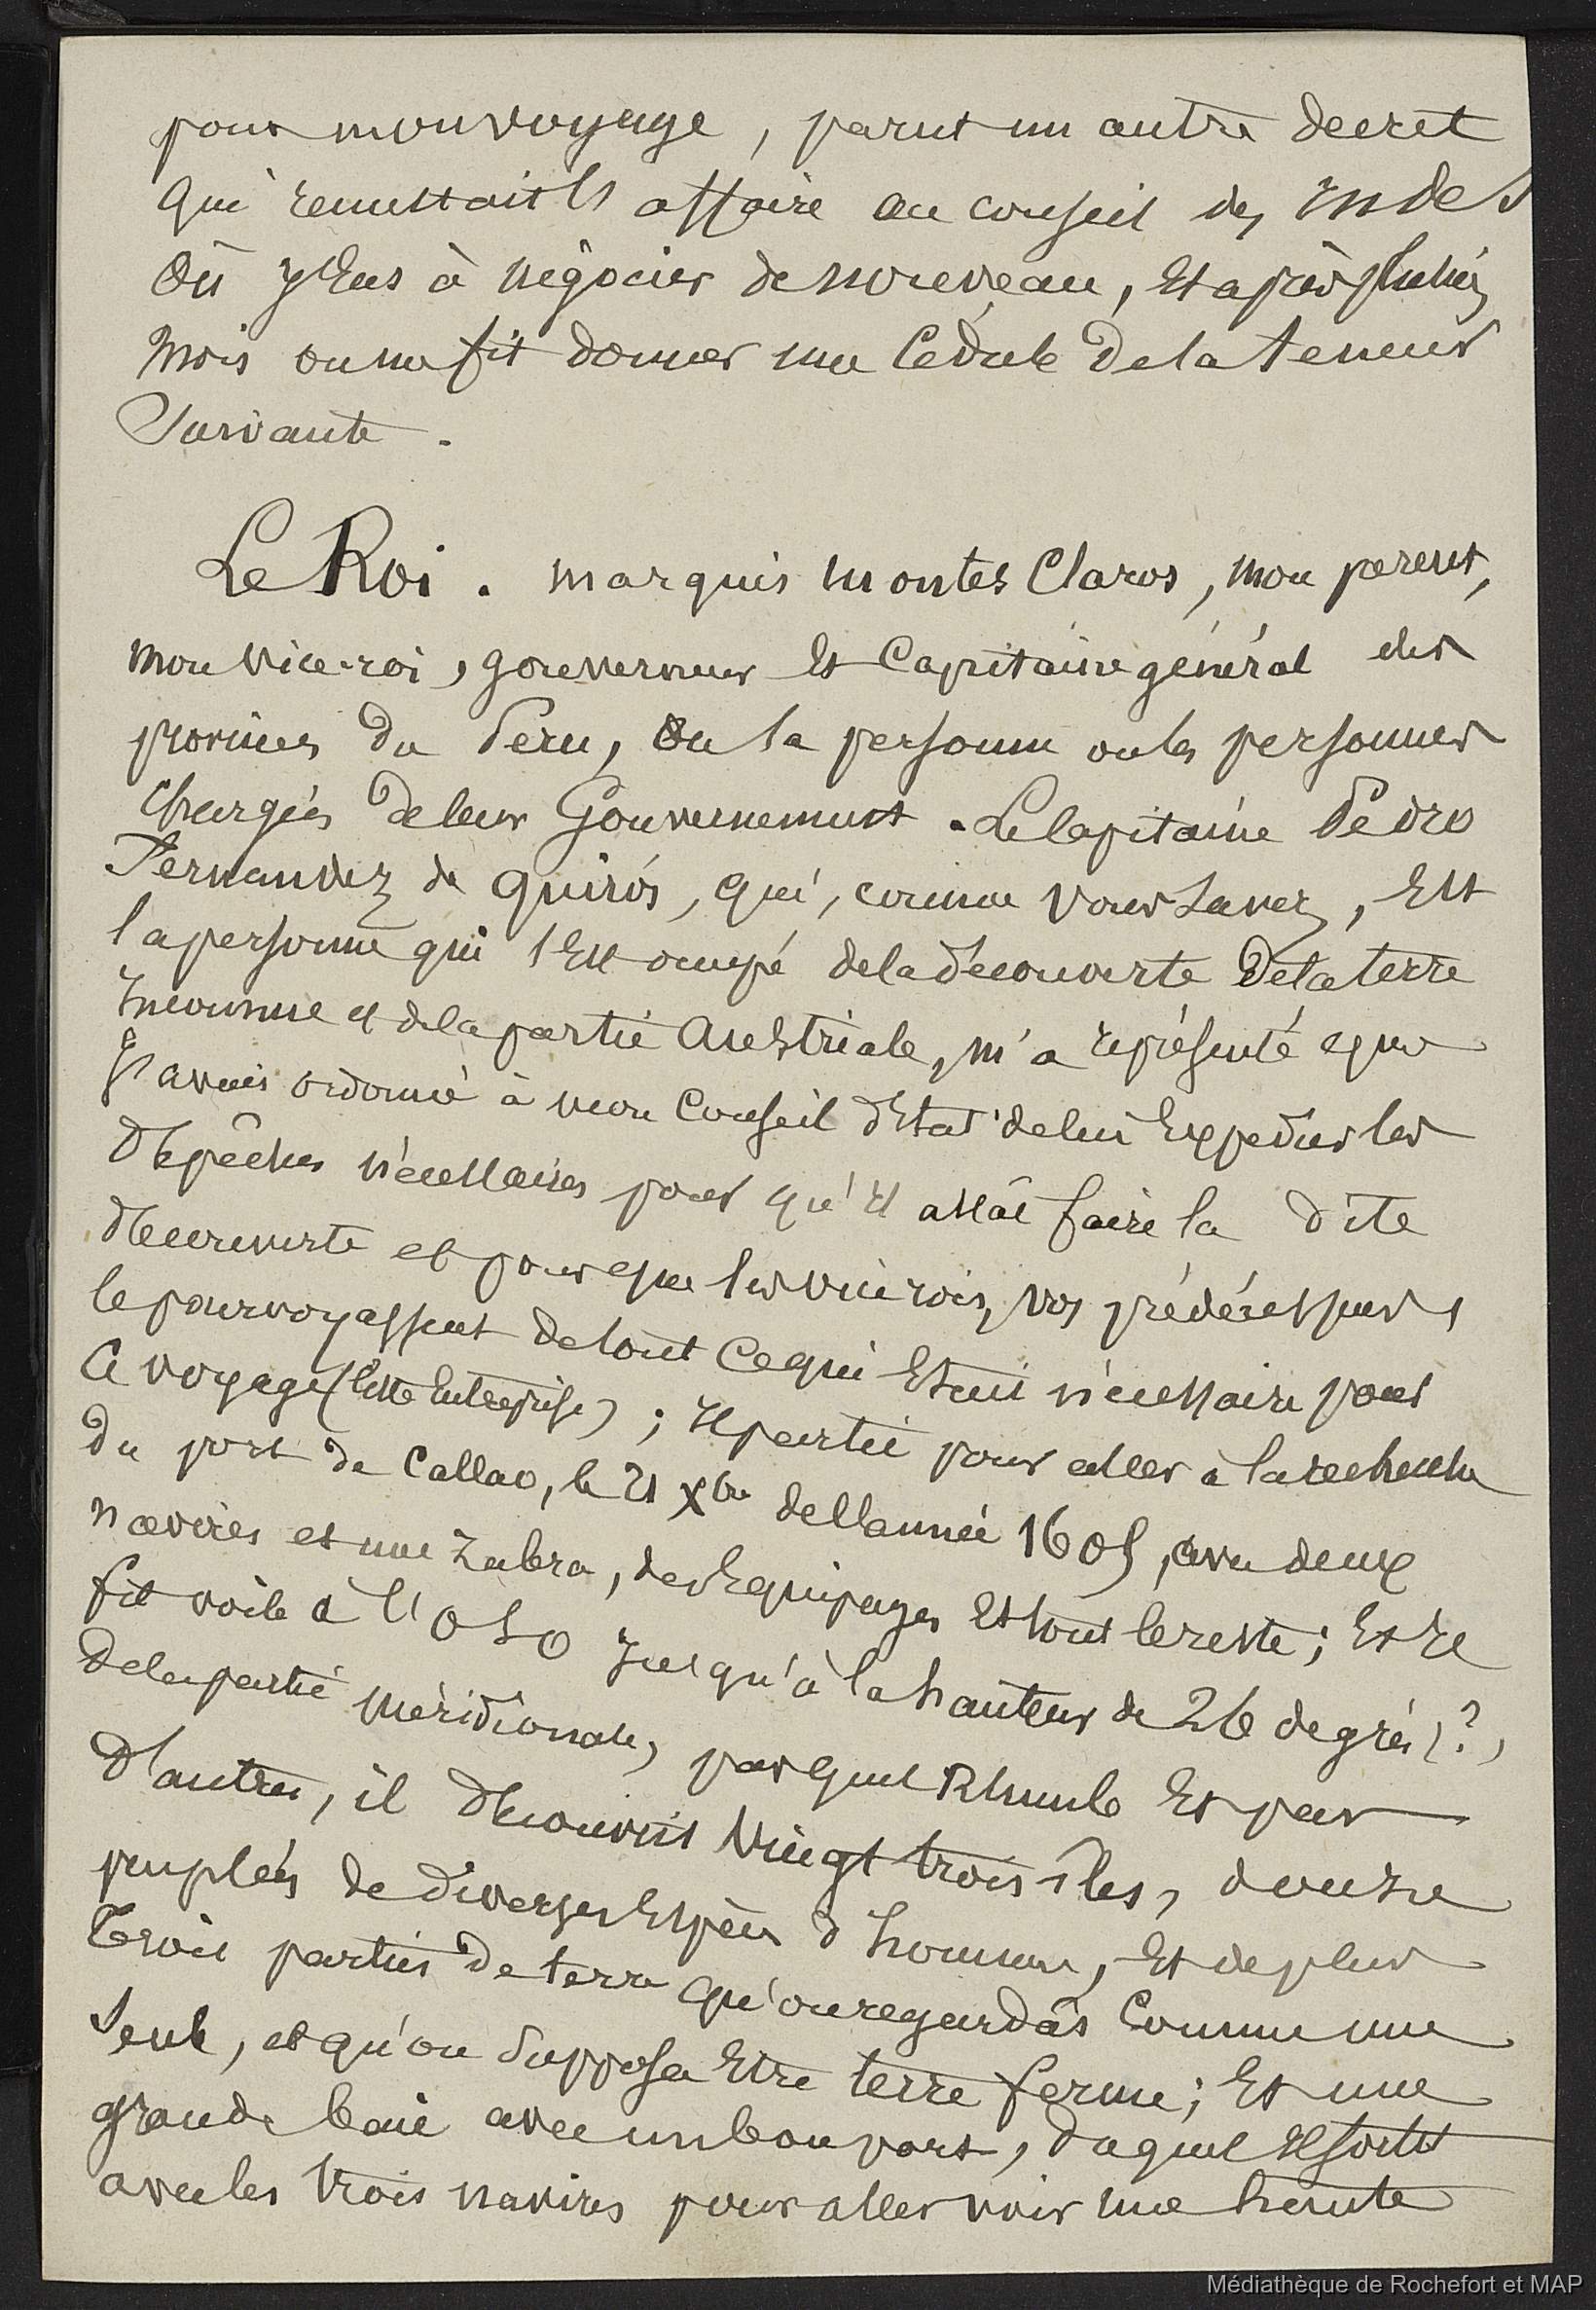 pour mon voyage, parut un autre decret
qui remettait l'affaire au conseil des Indes
Où j'Eus à négocier de nouveau, Et après plusieurs
mois on me fit donner une Cédule De la teneur
Suivante.
Le Roi. marquis montes Claros, mon parent,
mon vice-roi, gouverneur Et Capitaine général des
provinces Du Perú, Ou la personne ou les personnes
Chargées de leur Gouvernement. Le Capitaine Pedro
Fernandez de Quirós, qui, comme vous savez, Est
la personne qui s'Est occupé de la découverte De la terre
Inconnue et de la partie Australe, m'a représenté que
J'avais ordonné à mon Conseil d'Etat de lui Expedier les
dépêches nécessaires pour qu'Il allât faire la dite
découverte et pour que les vice rois, vos prédécesseurs,
le pourvoyassent de tout Ce qui Etait nécessaire pour
Ce voyage (Cette Entreprise); Il partit pour aller à la recherche
Du port de Callao, le 21 Xbre de l'année 1605, avec deux
navires et une Zabra, des Equipages Et tout le reste; Et Il
fit voile à l'OSO Jusqu'à la hauteur de 26 degrés (?)
De la partie méridionale, par quel Rhumb Et par
d'autres, il découvrit Vingt trois îles, douze
peuplées de diverses Espèces d'hommes, Et de plus
Trois parties de terre qu'on regardât Comme une
Seule, et qu'on supposa Etre terre ferme; Et une
grande baie avec un bon port, duquel Il sortit
avec les trois navires pour aller voir une haute
Médiathèque de Rochefort et MAP